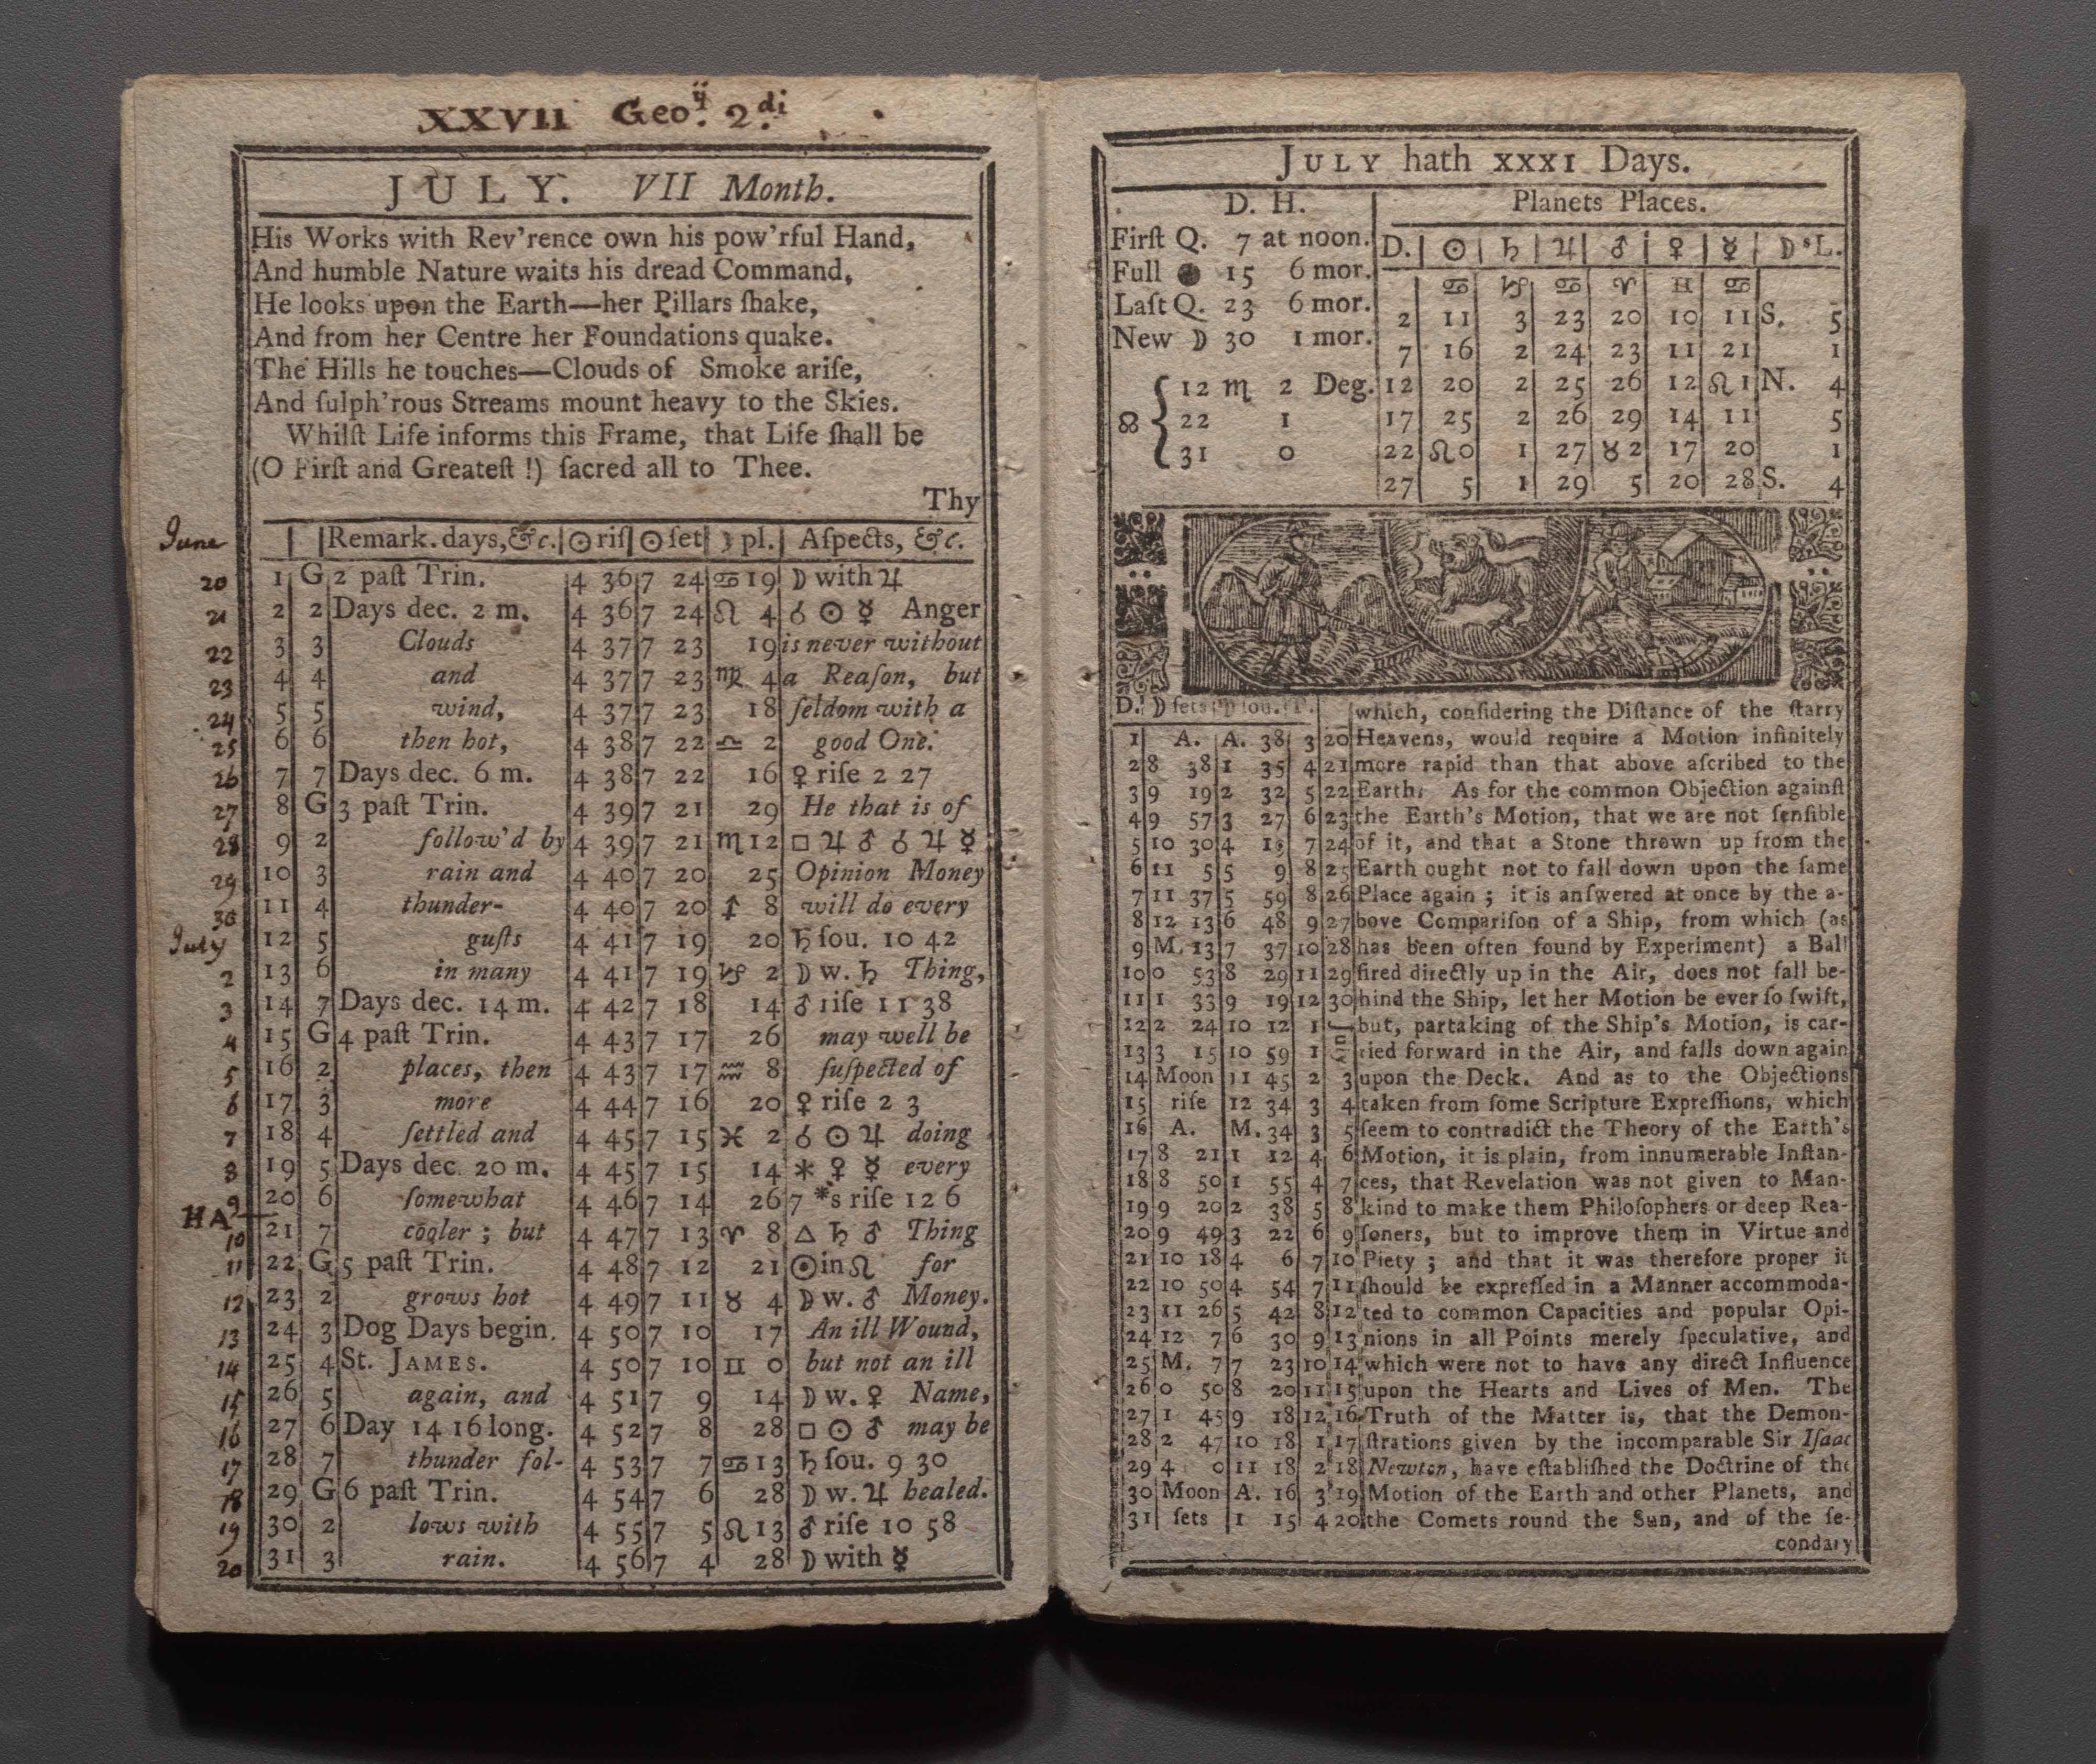 XXVII Geo.ij 2.di
JULY. VII Month.
His Works with Rev'rence own his pow'rful Hand,
And humble Nature waits his dread Command,
He looks upon the Earth—her Pillars ſhake,
And from her Centre her Foundations quake.
The Hills he touches—Clouds of Smoke ariſe,
And ſulph'rous Streams mount heavy to the Skies.
Whilſt Life informs this Frame, that Life ſhall be
(O Firſt and Greateſt !) ſacred all to Thee.
Thy
June
Remark. days, &c. ☉ riſ ☉ ſet ☽ pl. Aſpects, &c.
20 1 G 2 paſt Trin. 4 36 7 24 ♋ 19 ☽ with ♃
21 2 2 Days dec. 2 m. 4 36 7 24 ♌ 4 ☌ ☉ ☿ Anger
22 3 3 Clouds 4 37 7 23 19 is never without
23 4 4 and 4 37 7 23 ♍ 4 a Reaſon, but
24 5 5 wind, 4 37 7 23 18 ſeldom with a
25 6 6 then hot, 4 38 7 22 ♎ 2 good One.
26 7 7 Days dec. 6 m. 4 38 7 22 16 ♀ riſe 2 27
27 8 G 3 paſt Trin. 4 39 7 21 29 He that is of
28 9 2 follow'd by 4 39 7 21 ♏ 12 □ ♃ ♂ ☌ ♃ ☿
29 10 3 rain and 4 40 7 20 25 Opinion Money
30 11 4 thunder- 4 40 7 20 ♐ 8 will do every
July 12 5 guſts 4 41 7 19 20 ♄ ſou. 10 42
2 13 6 in many 4 41 7 19 ♑ 2 ☽ w. ♄ Thing,
3 14 7 Days dec. 14 m. 4 42 7 18 14 ♂ riſe 11 38
4 15 G 4 paſt Trin. 4 43 7 17 26 may well be
5 16 2 places, then 4 43 7 17 ♒ 8 ſuſpected of
6 17 3 more 4 44 7 16 20 ♀ riſe 2 3
7 18 4 ſettled and 4 45 7 15 ♓ 2 ☌ ☉ ♃ doing
8 19 5 Days dec. 20 m. 4 45 7 15 14 ⚹ ♀ ☿ every
9 20 6 ſomewhat 4 46 7 14 26 7 *s riſe 12 6
HA
10 21 7 cooler ; but 4 47 7 13 ♈ 8 △ ♄ ♂ Thing
11 22 G 5 paſt Trin. 4 48 7 12 21 ☉ in ♌ for
12 23 2 grows hot 4 49 7 11 ♉ 4 ☽ w. ♂ Money.
13 24 3 Dog Days begin. 4 50 7 10 17 An ill Wound,
14 25 4 St. JAMES. 4 50 7 10 ♊ 0 but not an ill
15 26 5 again, and 4 51 7 9 14 ☽ w. ♀ Name,
16 27 6 Day 14 16 long. 4 52 7 8 28 □ ☉ ♂ may be
17 28 7 thunder fol- 4 53 7 7 ♋ 13 ♄ ſou. 9 30
18 29 G 6 paſt Trin. 4 54 7 6 28 ☽ w. ♃ healed.
19 30 2 lows with 4 55 7 5 ♌ 13 ♂ riſe 10 58
20 31 3 rain. 4 56 7 4 28 ☽ with ☿
JULY hath XXXI Days.
D. H.
Firſt Q. 7 at noon.
Full ● 15 6 mor.
Laſt Q. 23 6 mor.
New ☽ 30 1 mor.
☊ 12 ♏ 2 Deg.
22 1
31 0
Planets Places.
D. ☉ ♄ ♃ ♂ ♀ ☿ ☽'s L.
♋ ♑ ♋ ♈ ♊ ♋
2 11 3 23 20 10 11 S. 5
7 16 2 24 23 11 21 1
12 20 2 25 26 12 ♌ 1 N. 4
17 25 2 26 29 14 11 5
22 ♌ 0 1 27 ♉ 2 17 20 1
27 5 1 29 5 20 28 S. 4
D. ☽ ſets ☽ ſou. T. which, conſidering the Diſtance of the ſtarry
1 A. A. 38 3 20 Heavens, would require a Motion infinitely
2 8 38 1 35 4 21 more rapid than that above aſcribed to the
3 9 19 2 32 5 22 Earth. As for the common Objection againſt
4 9 57 3 27 6 23 the Earth's Motion, that we are not ſenſible
5 10 30 4 19 7 24 of it, and that a Stone thrown up from the
6 11 5 5 9 8 25 Earth ought not to fall down upon the ſame
7 11 37 5 59 8 26 Place again ; it is anſwered at once by the a-
8 12 13 6 48 9 27 bove Compariſon of a Ship, from which (as
9 M. 13 7 37 10 28 has been often found by Experiment) a Ball
10 0 53 8 29 11 29 fired directly up in the Air, does not fall be-
11 1 33 9 19 12 30 hind the Ship, let her Motion be ever ſo ſwift,
12 2 24 10 12 1 July but, partaking of the Ship's Motion, is car-
13 3 15 10 59 1 ried forward in the Air, and falls down again
14 Moon 11 45 2 3 upon the Deck. And as to the Objections
15 riſe 12 34 3 4 taken from ſome Scripture Expreſſions, which
16 A. M. 34 3 5 ſeem to contradict the Theory of the Earth's
17 8 21 1 12 4 6 Motion, it is plain, from innumerable Inſtan-
18 8 50 1 55 4 7 ces, that Revelation was not given to Man-
19 9 20 2 38 5 8 kind to make them Philoſophers or deep Rea-
20 9 49 3 22 6 9 ſoners, but to improve them in Virtue and
21 10 18 4 6 7 10 Piety ; and that it was therefore proper it
22 10 50 4 54 7 11 ſhould be expreſſed in a Manner accommoda-
23 11 26 5 42 8 12 ted to common Capacities and popular Opi-
24 12 7 6 30 9 13 nions in all Points merely ſpeculative, and
25 M. 7 7 23 10 14 which were not to have any direct Influence
26 0 50 8 20 11 15 upon the Hearts and Lives of Men. The
27 1 45 9 18 12 16 Truth of the Matter is, that the Demon-
28 2 47 10 18 1 17 ſtrations given by the incomparable Sir Iſaac
29 4 0 11 18 2 18 Newton, have eſtabliſhed the Doctrine of the
30 Moon A. 16 3 19 Motion of the Earth and other Planets, and
31 ſets 1 15 4 20 the Comets round the Sun, and of the ſe-
condary